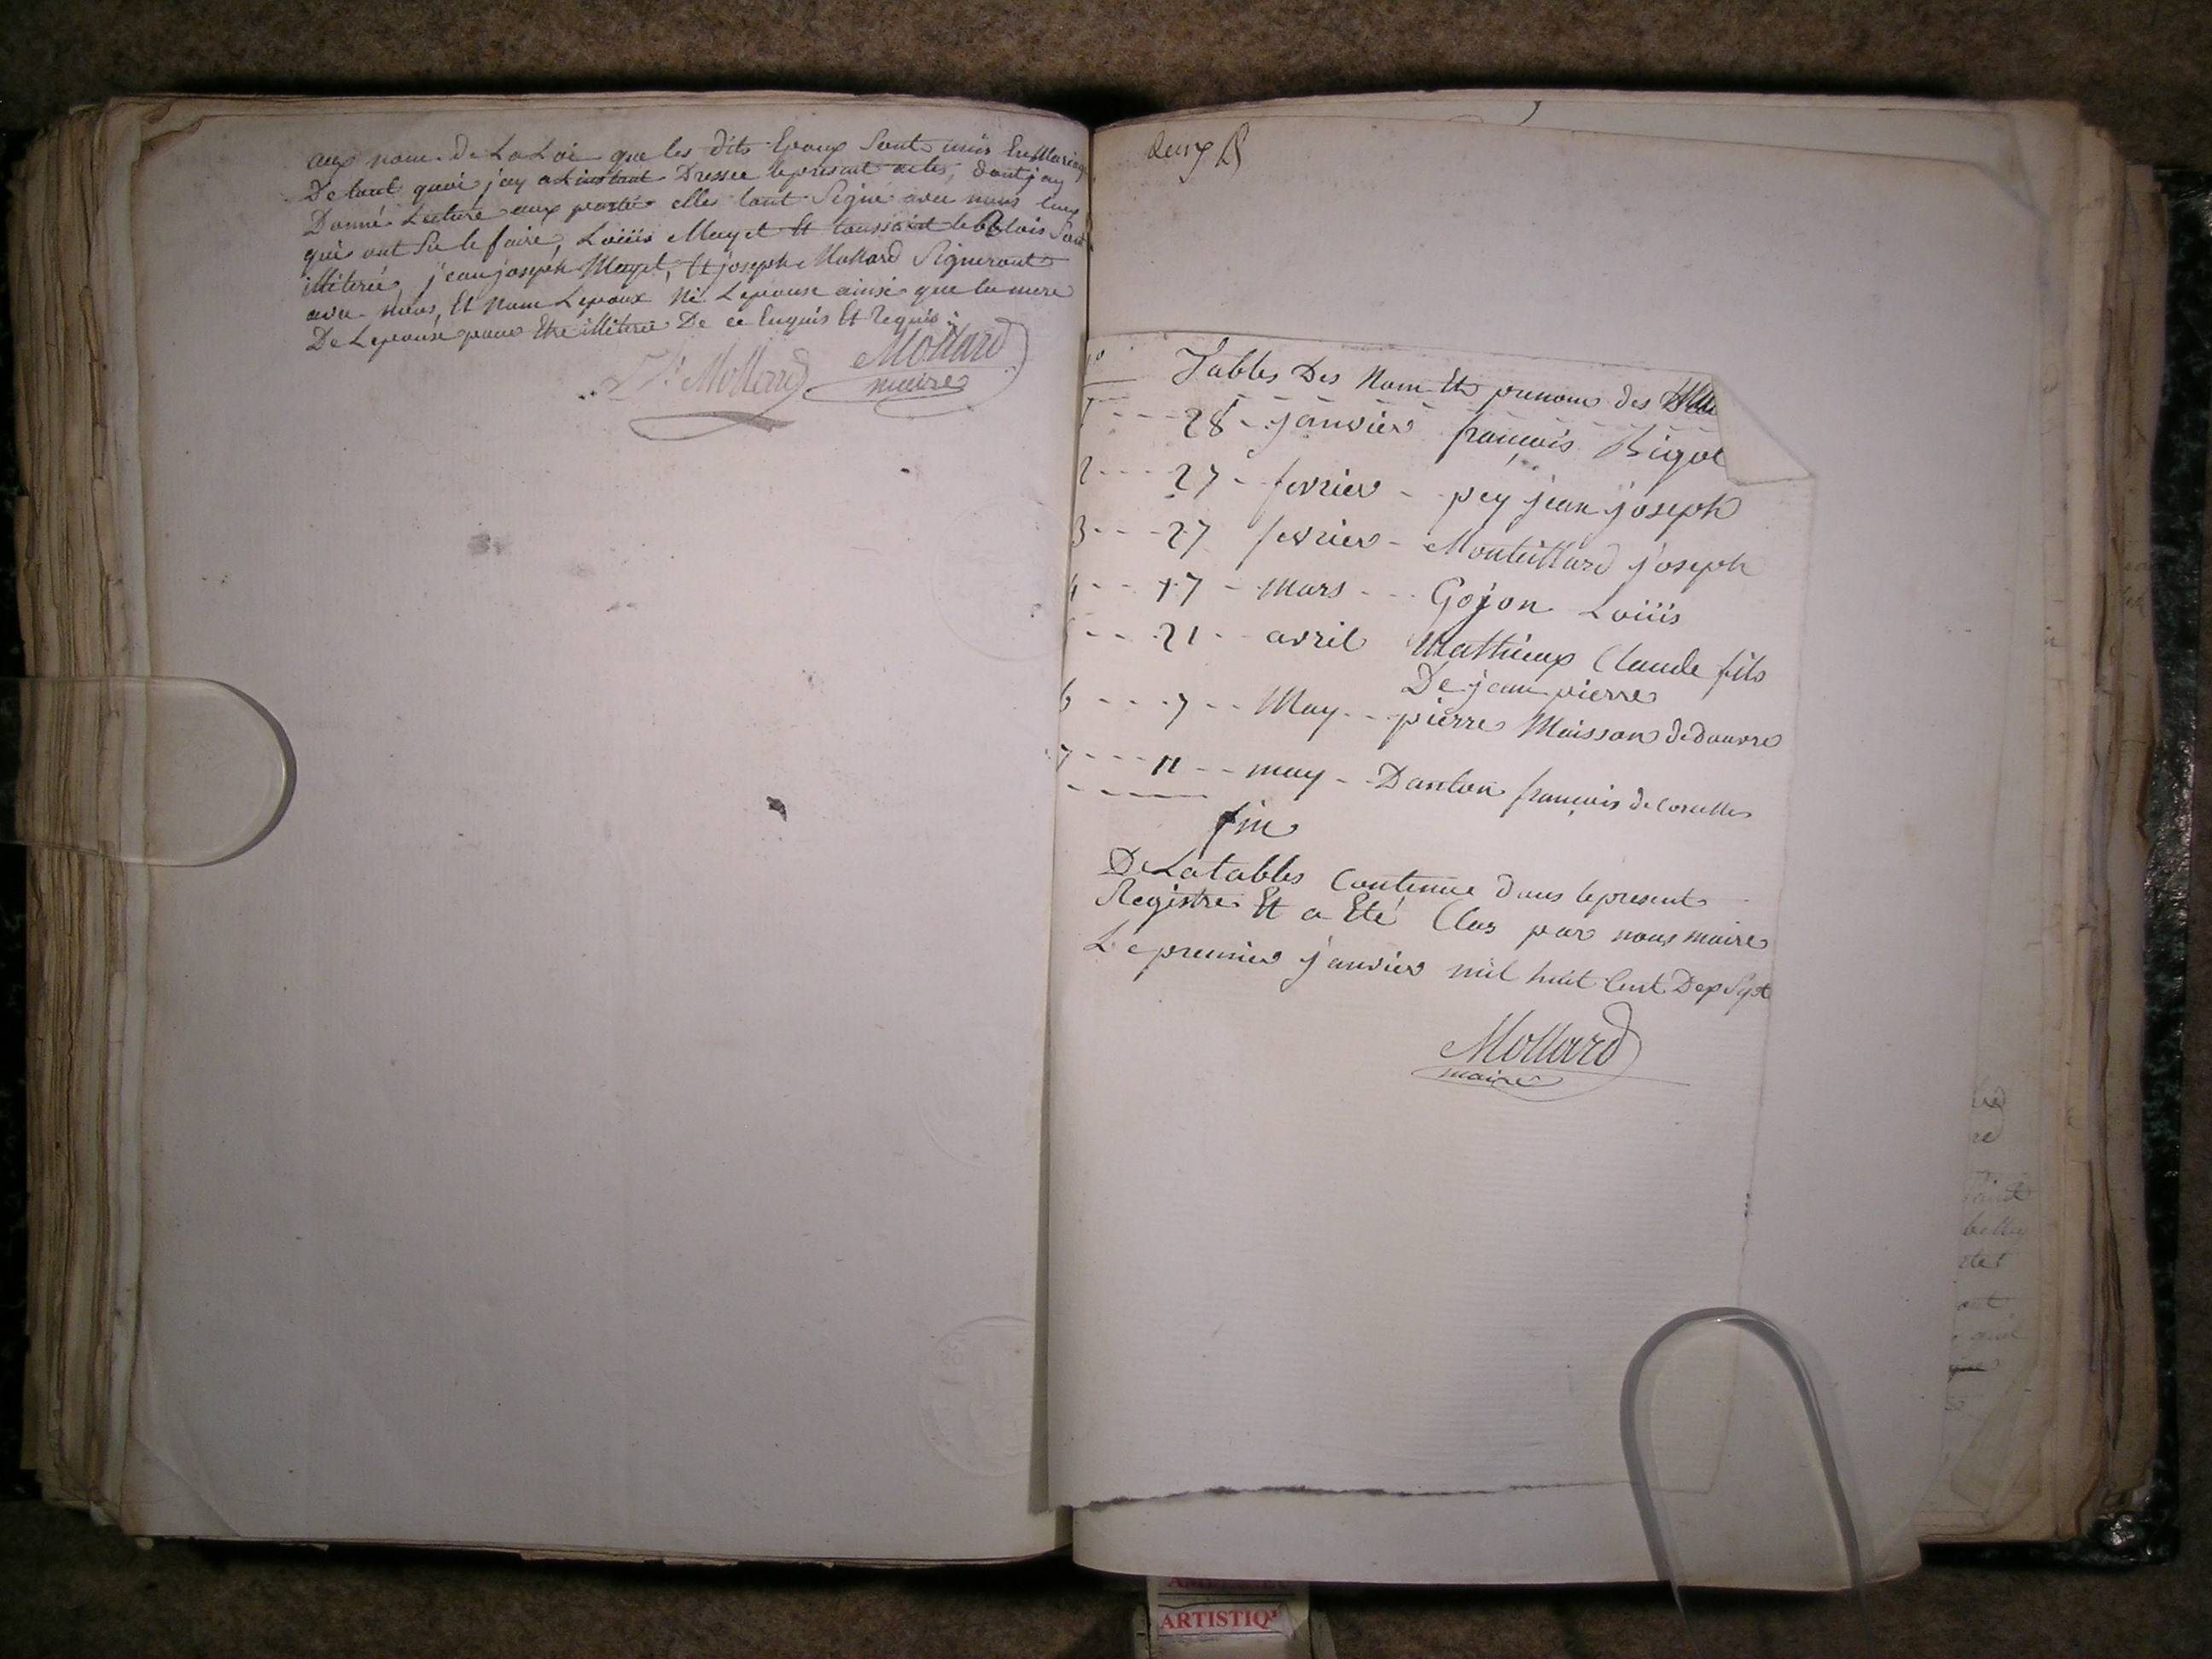 aux nom de La Loi que les dits Epoux Sont unis En Mariage
De tout quoi j'ay a Linstant Dressee le present actes, dont j'ay
Donné Lecture aux parties elles l'ont Signé avec nous
qui ont Su le faire, Loüis Mayet Et toussaint le Sont
illiterés jean joseph Mayet, Et joseph Mollard Signeront
avec nous, Et nom L'epoux Ni L'epouse ainsi que la mere
De L'epouse pour Etre illiteré De ce Enquis Et Requis
Mollard Mollard
maire
deux
Tables Des Nom Et prenom des
1 28 janvier françois Bigot
2 27 fevrier pey jean joseph
3 27 fevrier Monteillard joseph
4 17 mars Gojon Loüis
21 avril Mathieux Claude fils
De jean pierre
6 7 May pierre Maisson de douvre
7 11 may Danton françois de Corcelles
fin
De La tables Contenue dans le present
Registre Et a Eté Clos par nous maire
Le premier janvier mil huit Cent Dix Sept
Mollard
maire
ARTISTIQ